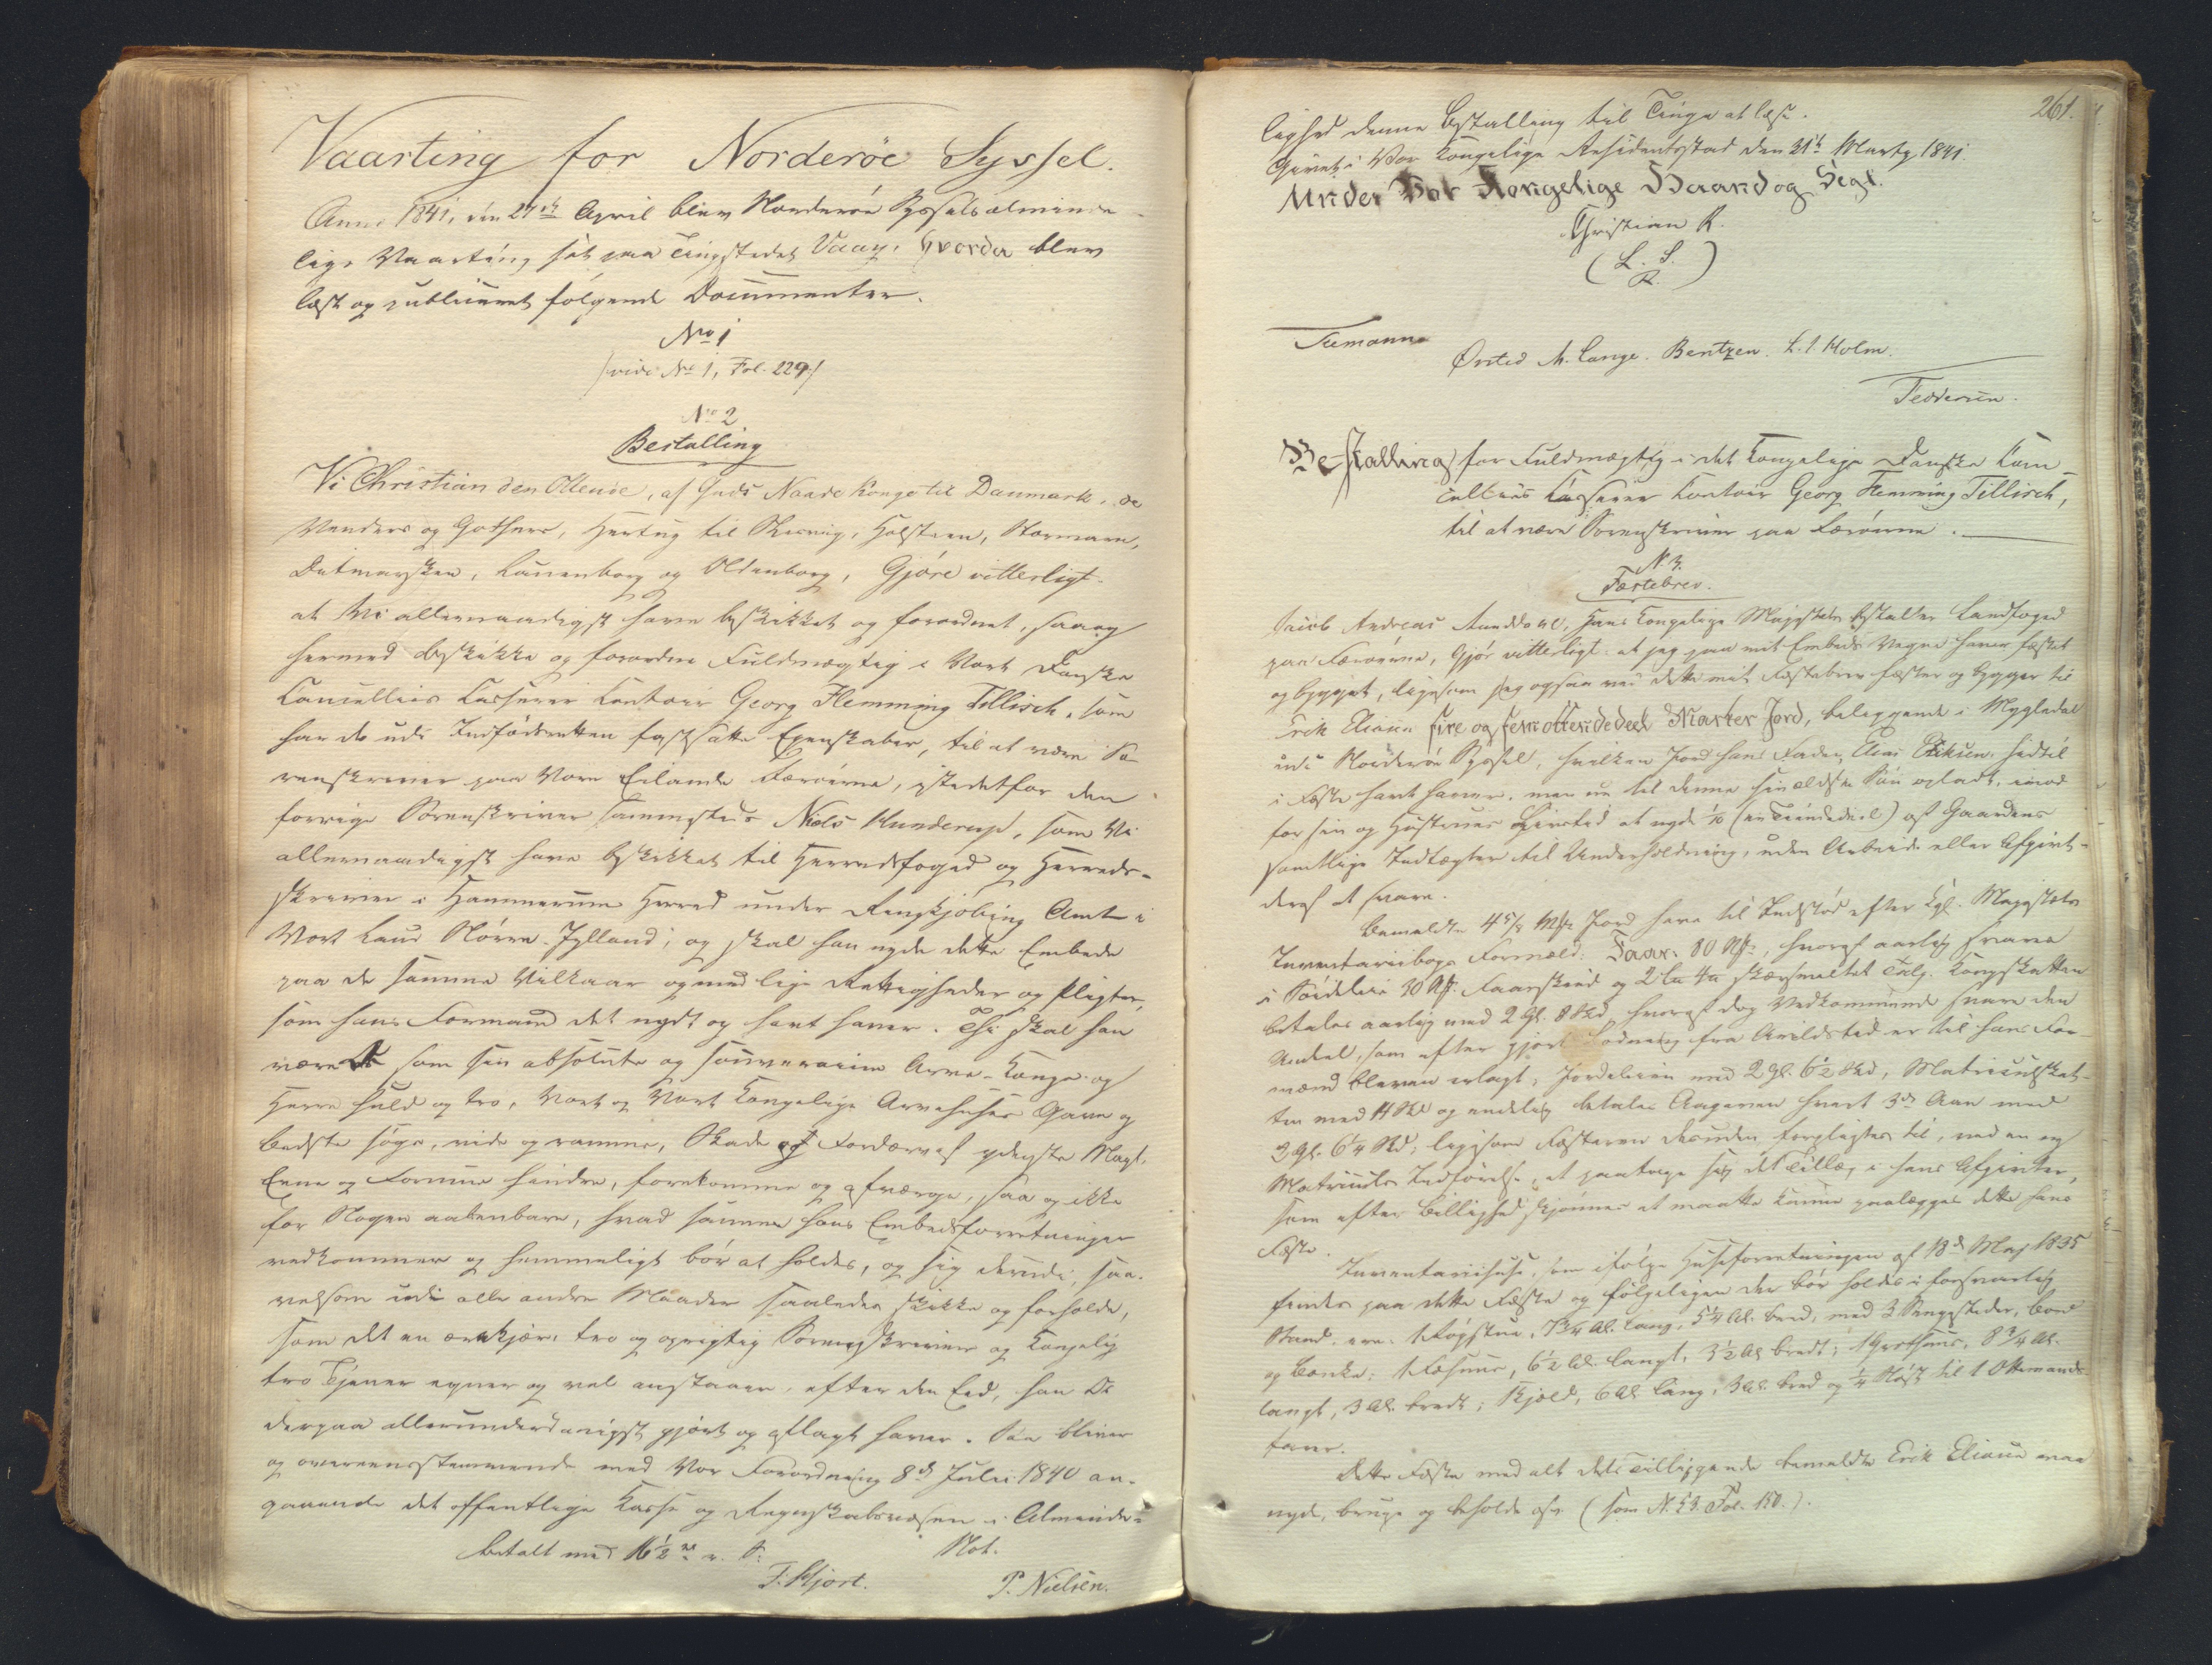 Vaarting for Norderöe Syssel.
Anno 1841, den 27de April blev Norderöe Syssels alminde-
lige Vaarting sat paa Tingstedet Vaag, hvorda blev
læst og publiceret følgende Documenter.
Nro 1
/:vide No 1, Fol. 229:/
Nro 2
Bestalling
Vi Christian den Ottende, af Guds Naade Konge til Danmark, de
Venders og Gothers, Hertug til Slesvig, Holsteen, Stormarn,
Ditmarsken, Lauenborg og Oldenborg, Gjöre vitterligt:
at Vi allernaadigst have beskikket og forordnet, saa og
hermed beskikke og forordne Fuldmægtig i Vort Danske
Cancellies Casserer Contoir Georg Flemming Tillisch, som
har de udi Indfödsretten fastsatte Egenskaber, til at være So-
renskriver paa Vore Eilande Færöerne, istedetfor den
forrige Sorenskriver sammesteds Niels Munderup, som Vi
allernaadigst have beskikket til Herredsfoged og Herreds-
skriver i Hammerum Herred under Ringkjöbing Amt i
Vort Land Nörre-Jylland; og skal han nyde dette Embede
paa de samme Vilkaar og med lige Rettigheder og Pligter,
som hans Formand det nydt og havt haver. Thi skal han
være Os som sin absolute og souveraine Arve-Konge og
Herre huld og tro, Vort og Vort Kongelige Arvehuses Gavn og
bedste søge, vide og ramme, Skade og Fordærvelse yderste Magt,
Evne og Formue hindre, forekomme og afværge, saa og ikke
for Nogen aabenbare, hvad saavel hans Embedsforretninger
vedkommer og hemmeligt bör at holdes, og sig derudi, saa-
velsom udi alle andre Maader saaledes skikke og forholde,
som det en ærekjær, tro og oprigtig Sorenskriver og Kongelig
tro Tjener egner og vel anstaaer, efter den Eed, han Os
derpaa allerunderdanigst gjort og aflagt haver. Saa bliver
og overeensstemmende med Vor Forordning 8de Julii 1840 an-
gaaende det offentlige Kasse og Regnskabsvæsen i Alminde-
betalt med 16½ r. S: Not.
F. Hjort. P. Nielsen.
261.
lighed denne Bestalling til Tinge at læse.
Givet i Vor Kongelige Residentsstad den 31te Martz 1841.
Under Vor Kongelige Haand og Segl.
Christian R.
(L. S.
R.)
Stemann
Örsted M. Lange. Bentzen. L. I. Holm.
Feddersen.
Bestalling for Fuldmægtig i det Kongelige Danske Can-
cellies Casserer Contoir Georg Flemming Tillisch,
til at være Sorenskriver paa Færöerne.
N. 3.
Fæstebrev.
Jacob Andreas Lunddahl, Hans Kongelige Majestæts bestalter Landfoged
paa Færöerne, Gjör vitterligt: at jeg paa mit Embeds Vegne haver fæstet
og bygget, ligesom jeg ogsaa ved dette mit Fæstebrev fæster og bygger til
Erik Eliasen fire og fem ottendedeel Marker Jord, beliggende i Mygledal
udi Norderöe Syssel, hvilken Jord hans Fader Elias Eriksen hidtil
i Fæste havt haver, men nu til denne sin ældste Sön opladt, imod
for sin og Hustrues Livstid at nyde 1/10 (en Tiendedeel) af Gaardens
samtlige Indtægter til Underholdning, uden Arbeide eller Afgivt
deraf at svare.
Bemeldte 4 5/8 Mk Jord have til Indstöd efter Kgl. Majestæts
Inventariibogs Formeld: Faar: 80 Stk:, hvoraf aarlig svares
i Söideleie 10 Stk. Faarskind og 2 Lu 4 u skjærsmeltet Talg. Kongskatten
betales aarlig med 2 Gl. 8 Skd, hvoraf dog Vedkommende svare den
Andel, som efter gjort Lodning fra Arildstid er til hans For-
mænd bleven erlagt; Jordeleien med 2 Gl. 6½ Skd, Matriculskat-
ten med 14 Skd og endelig betales Aagaven hvert 3de Aar med
3 Gl. 6¼ Skd; ligesom Fæsteren desuden forpligtes til, ved en ny
Matriculs Indförelse, at paatage sig det Tillæg i hans Afgivter,
som efter Billighed skjönnes at maatte kunne paalægges dette hans
Fæste.
Inventariihuse, som ifölge Huseforretningen af 18de Maj 1835
findes paa dette Fæste og fölgeligen der bör holdes i forsvarlig
Stand, ere: 1 Rögstue, 7¾ Al. lang, 5¼ Al. bred, med 3 Sengesteder, Bord
og Bænke; 1 Fæhuus, 6½ Al. langt, 3½ Al. bredt; 1 Grothuus, 8¾ Al.
langt, 3 Al. bredt; 1 Kjeld, 6 Al. lang, 3 Al. bred og ¼ Nöst til 1 Ottemands
farer.
Dette Fæste med alt dets Tilliggende bemeldte Erik Eliasen maa
nyde, bruge og beholde osv. (som N. 53. Fol. 150.).